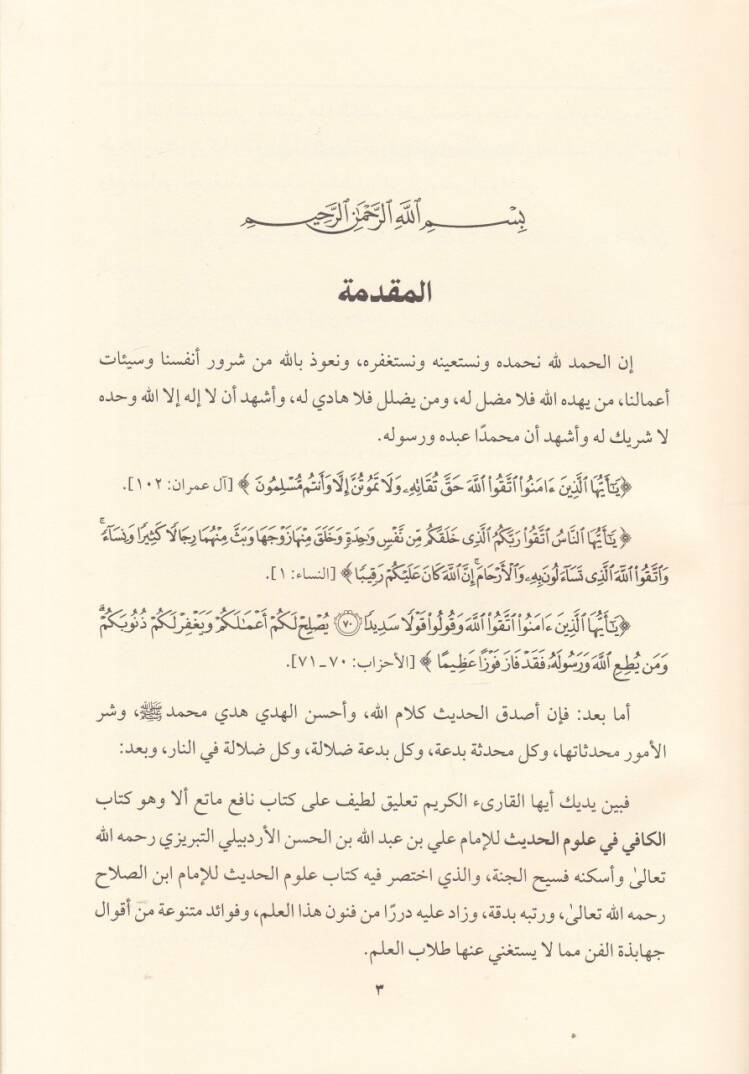 بِسْمِ ٱللَّهِ ٱلرَّحْمَٰنِ ٱلرَّحِيمِ
المقدمة
إن الحمد لله نحمده ونستعينه ونستغفره، ونعوذ بالله من شرور أنفسنا وسيئات
أعمالنا، من يهده الله فلا مضل له، ومن يضلل فلا هادي له، وأشهد أن لا إله إلا الله وحده
لا شريك له وأشهد أن محمدًا عبده ورسوله.
﴿يَٰٓأَيُّهَا ٱلَّذِينَ ءَامَنُوا۟ ٱتَّقُوا۟ ٱللَّهَ حَقَّ تُقَاتِهِۦ وَلَا تَمُوتُنَّ إِلَّا وَأَنتُم مُّسْلِمُونَ﴾ [آل عمران: ١٠٢].
﴿يَٰٓأَيُّهَا ٱلنَّاسُ ٱتَّقُوا۟ رَبَّكُمُ ٱلَّذِى خَلَقَكُم مِّن نَّفْسٍ وَٰحِدَةٍ وَخَلَقَ مِنْهَا زَوْجَهَا وَبَثَّ مِنْهُمَا رِجَالًا كَثِيرًا وَنِسَآءً ۚ
وَٱتَّقُوا۟ ٱللَّهَ ٱلَّذِى تَسَآءَلُونَ بِهِۦ وَٱلْأَرْحَامَ ۚ إِنَّ ٱللَّهَ كَانَ عَلَيْكُمْ رَقِيبًا﴾ [النساء: ١].
﴿يَٰٓأَيُّهَا ٱلَّذِينَ ءَامَنُوا۟ ٱتَّقُوا۟ ٱللَّهَ وَقُولُوا۟ قَوْلًا سَدِيدًا ٧٠ يُصْلِحْ لَكُمْ أَعْمَٰلَكُمْ وَيَغْفِرْ لَكُمْ ذُنُوبَكُمْ ۗ
وَمَن يُطِعِ ٱللَّهَ وَرَسُولَهُۥ فَقَدْ فَازَ فَوْزًا عَظِيمًا﴾ [الأحزاب: ٧٠ـ٧١].
أما بعد: فإن أصدق الحديث كلام الله، وأحسن الهدي هدي محمد ﷺ، وشر
الأمور محدثاتها، وكل محدثة بدعة، وكل بدعة ضلالة، وكل ضلالة في النار، وبعد:
فبين يديك أيها القارىء الكريم تعليق لطيف على كتاب نافع ماتع ألا وهو كتاب
الكافي في علوم الحديث للإمام علي بن عبد الله بن الحسن الأردبيلي التبريزي رحمه الله
تعالىٰ وأسكنه فسيح الجنة، والذي اختصر فيه كتاب علوم الحديث للإمام ابن الصلاح
رحمه الله تعالىٰ، ورتبه بدقة، وزاد عليه دررًا من فنون هذا العلم، وفوائد متنوعة من أقوال
جهابذة الفن مما لا يستغني عنها طلاب العلم.
٣